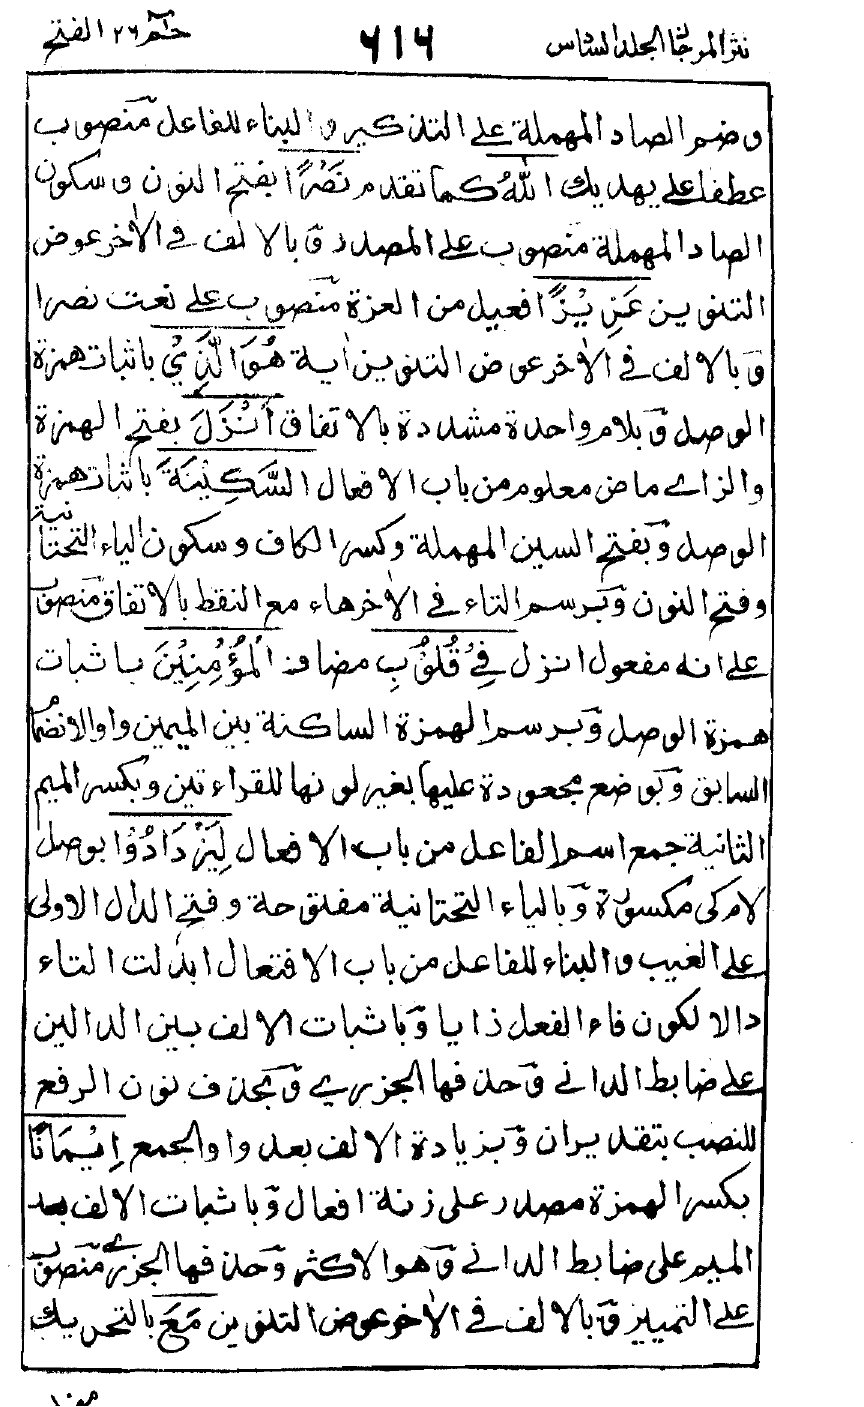 نثر المرجان الجلد السادس ٦١٦ حٰم ٢٦ الفتح
وضم الصاد المهملة على التذكير والبناء للفاعل منصوب
عطفا على يهديك اللهُ كما تقدم نَصْرًا بفتح النون وسكون
الصاد المهملة منصوب على المصدر وبالالف في الاٰخر عوض
التنوين عَزِيْزًا فعيل من العزة منصوب على نعت نصرا
وبالالف في الاٰخر عوض التنوين اٰية هُوَ الَّذِيْ باثبات همزة
الوصل وبلام واحدة مشددة بالاتفاق اَنْزَلَ بفتح الهمزة
والزاے ماض معلوم من باب الافعال السَّكِيْنَةَ باثبات همزة
الوصل وبفتح السين المهملة وكسر الكاف وسكون الياء التحتانية
وفتح النون وبرسم التاء في الاٰخر هاء مع النقط بالاتفاق منصوب
على انه مفعول انزل فِيْ قُلُوْبِ مضاف الْمُؤْمِنِيْنَ باثبات
همزة الوصل وبرسم الهمزة الساكنة بين الميمين واوا لانضمام
السابق وبوضع مجعودة عليها بغير لونها للقراءتين وبكسر الميم
الثانية جمع اسم الفاعل من باب الافعال لِيَزْدَادُوْا بوصل
لام كي مكسورة وبالياء التحتانية مفتوحة وفتح الدال الاولى
على الغيب والبناء للفاعل من باب الافتعال ابدلت التاء
دالا لكون فاء الفعل زايا وباثبات الالف بين الدالين
على ضابط الداني وحذفها الجزري وبحذف نون الرفع
للنصب بتقدير ان وبزيادة الالف بعد واو الجمع اِيْمَانًا
بكسر الهمزة مصدر على زنة افعال وباثبات الالف بعد
الميم على ضابط الداني وهو الاكثر وحذفها الجزري منصوب
على التمييز وبالالف في الاٰخر عوض التنوين مَعَ بالتحريك